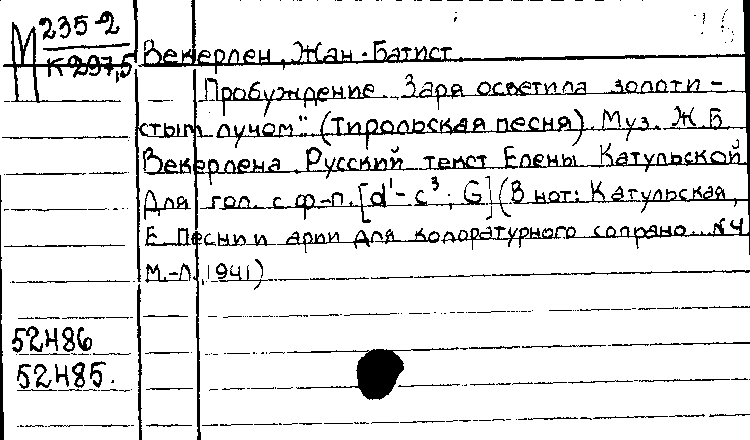 М 235-2
К 297,5
Векерлен, Жан-Батист.
Пробуждение. "Заря осветила золоти-
стым лучом". (Тирольская песня). Муз. Ж.Б.
Векерлена. Русский текст Елены Катульской
Для гол. с ф-п. [d¹-c³; G] (В нот: Катульская,
Е. Песни и арии для колоратурного сопрано... №4
М.-Л., 1941)
52486
52485.